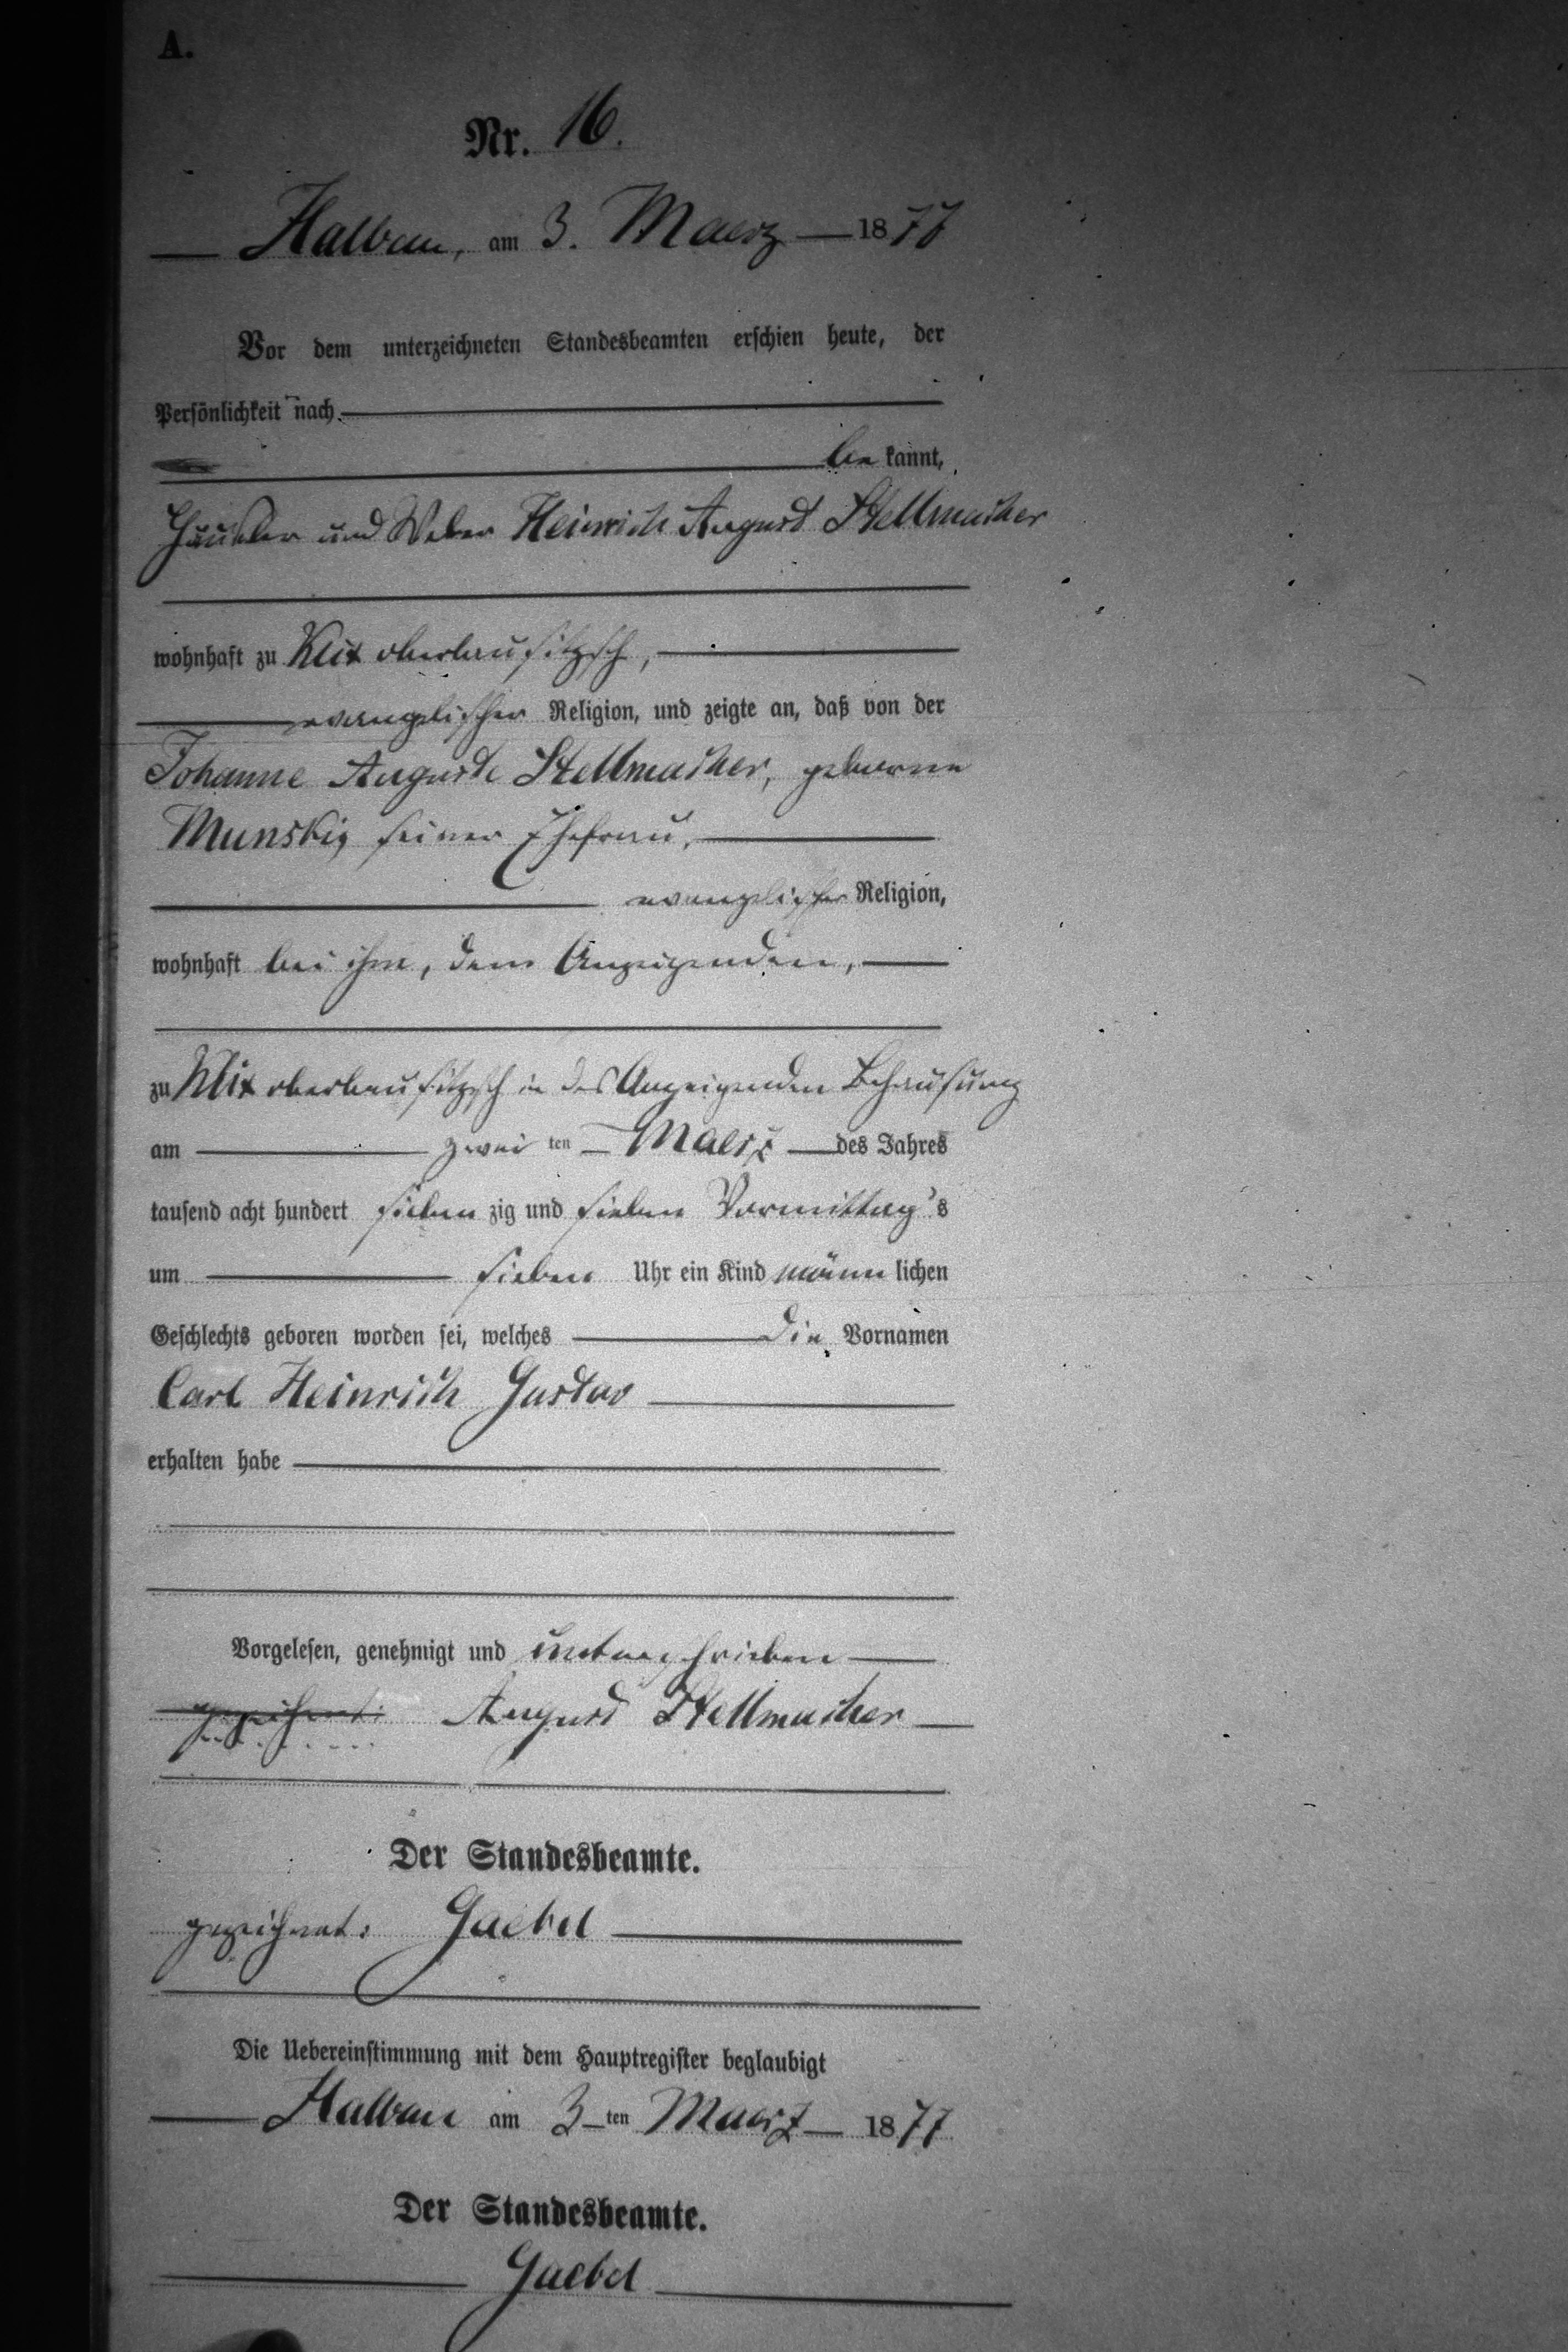 A.
Nr. 16.
Halbau, am 3. Maerz 1877
Vor dem unterzeichneten Standesbeamten erschien heute, der
Persönlichkeit nach
be kannt,
Häusler und Weber Heinrich August Stellmacher
wohnhaft zu Klix oberlausitzsch,
evangelischer Religion, und zeigte an, daß von der
Johanne Auguste Stellmacher, geborne
Munskig seiner Ehefrau,
evangelischer Religion,
wohnhaft bei ihm, dem Anzeigenden,
zu Klix oberlausitzsch in des Anzeigenden Behausung
am zwei ten Maerz des Jahres
tausend acht hundert sieben zig und sieben Vormittag's
um sieben Uhr ein Kind männ lichen
Geschlechts geboren worden sei, welches die Vornamen
Carl Heinrich Gustav
erhalten habe
Vorgelesen, genehmigt und unterschrieben
gezeichnet: August Stellmacher
Der Standesbeamte.
gezeichnet: Gaebel
Die Uebereinstimmung mit dem Hauptregister beglaubigt
Halbau am 3 ten Maerz 1877
Der Standesbeamte.
Gaebel